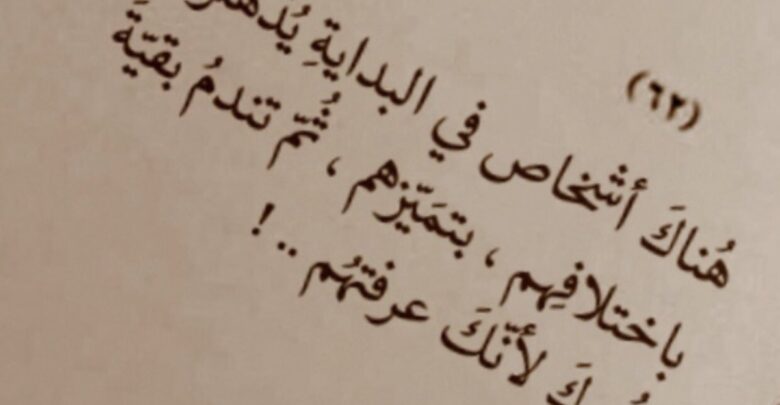 (٦٢)
هُناكَ أشخاص في البدايةِ
باختلافِهم ، بتمَيّزهم ، ثُمّ تندمُ بقيّة
لأنّكَ عرفتَهُم ..!